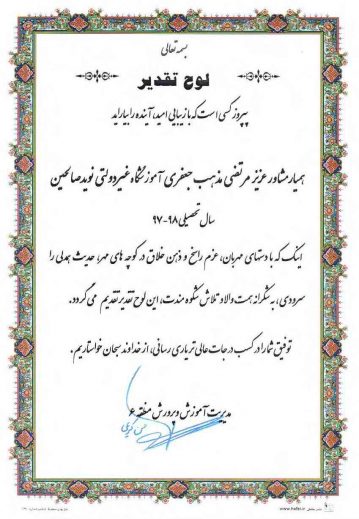 بسمه تعالی
لوح تقدیر
پیروز کسی است که با زیبایی امید، آینده را بیاراید
همیار مشاور عزیز مرتضی مذهب جعفری آموزشگاه غیردولتی نوید صالحین
سال تحصیلی ۹۸-۹۷
اینک که با دستهای مهربان، عزم راسخ و ذهن خلاق در کوچه های مهر، حدیث همدلی را
سرودی، به شکرانه همت والا و تلاش شکوه مندت، این لوح تقدیر تقدیم می گردد.
توفیق شما را در کسب درجات عالی تر یاری رسانی، از خداوند سبحان خواستاریم.
مدیریت آموزش و پرورش منطقه ۶
www.hafez.ir